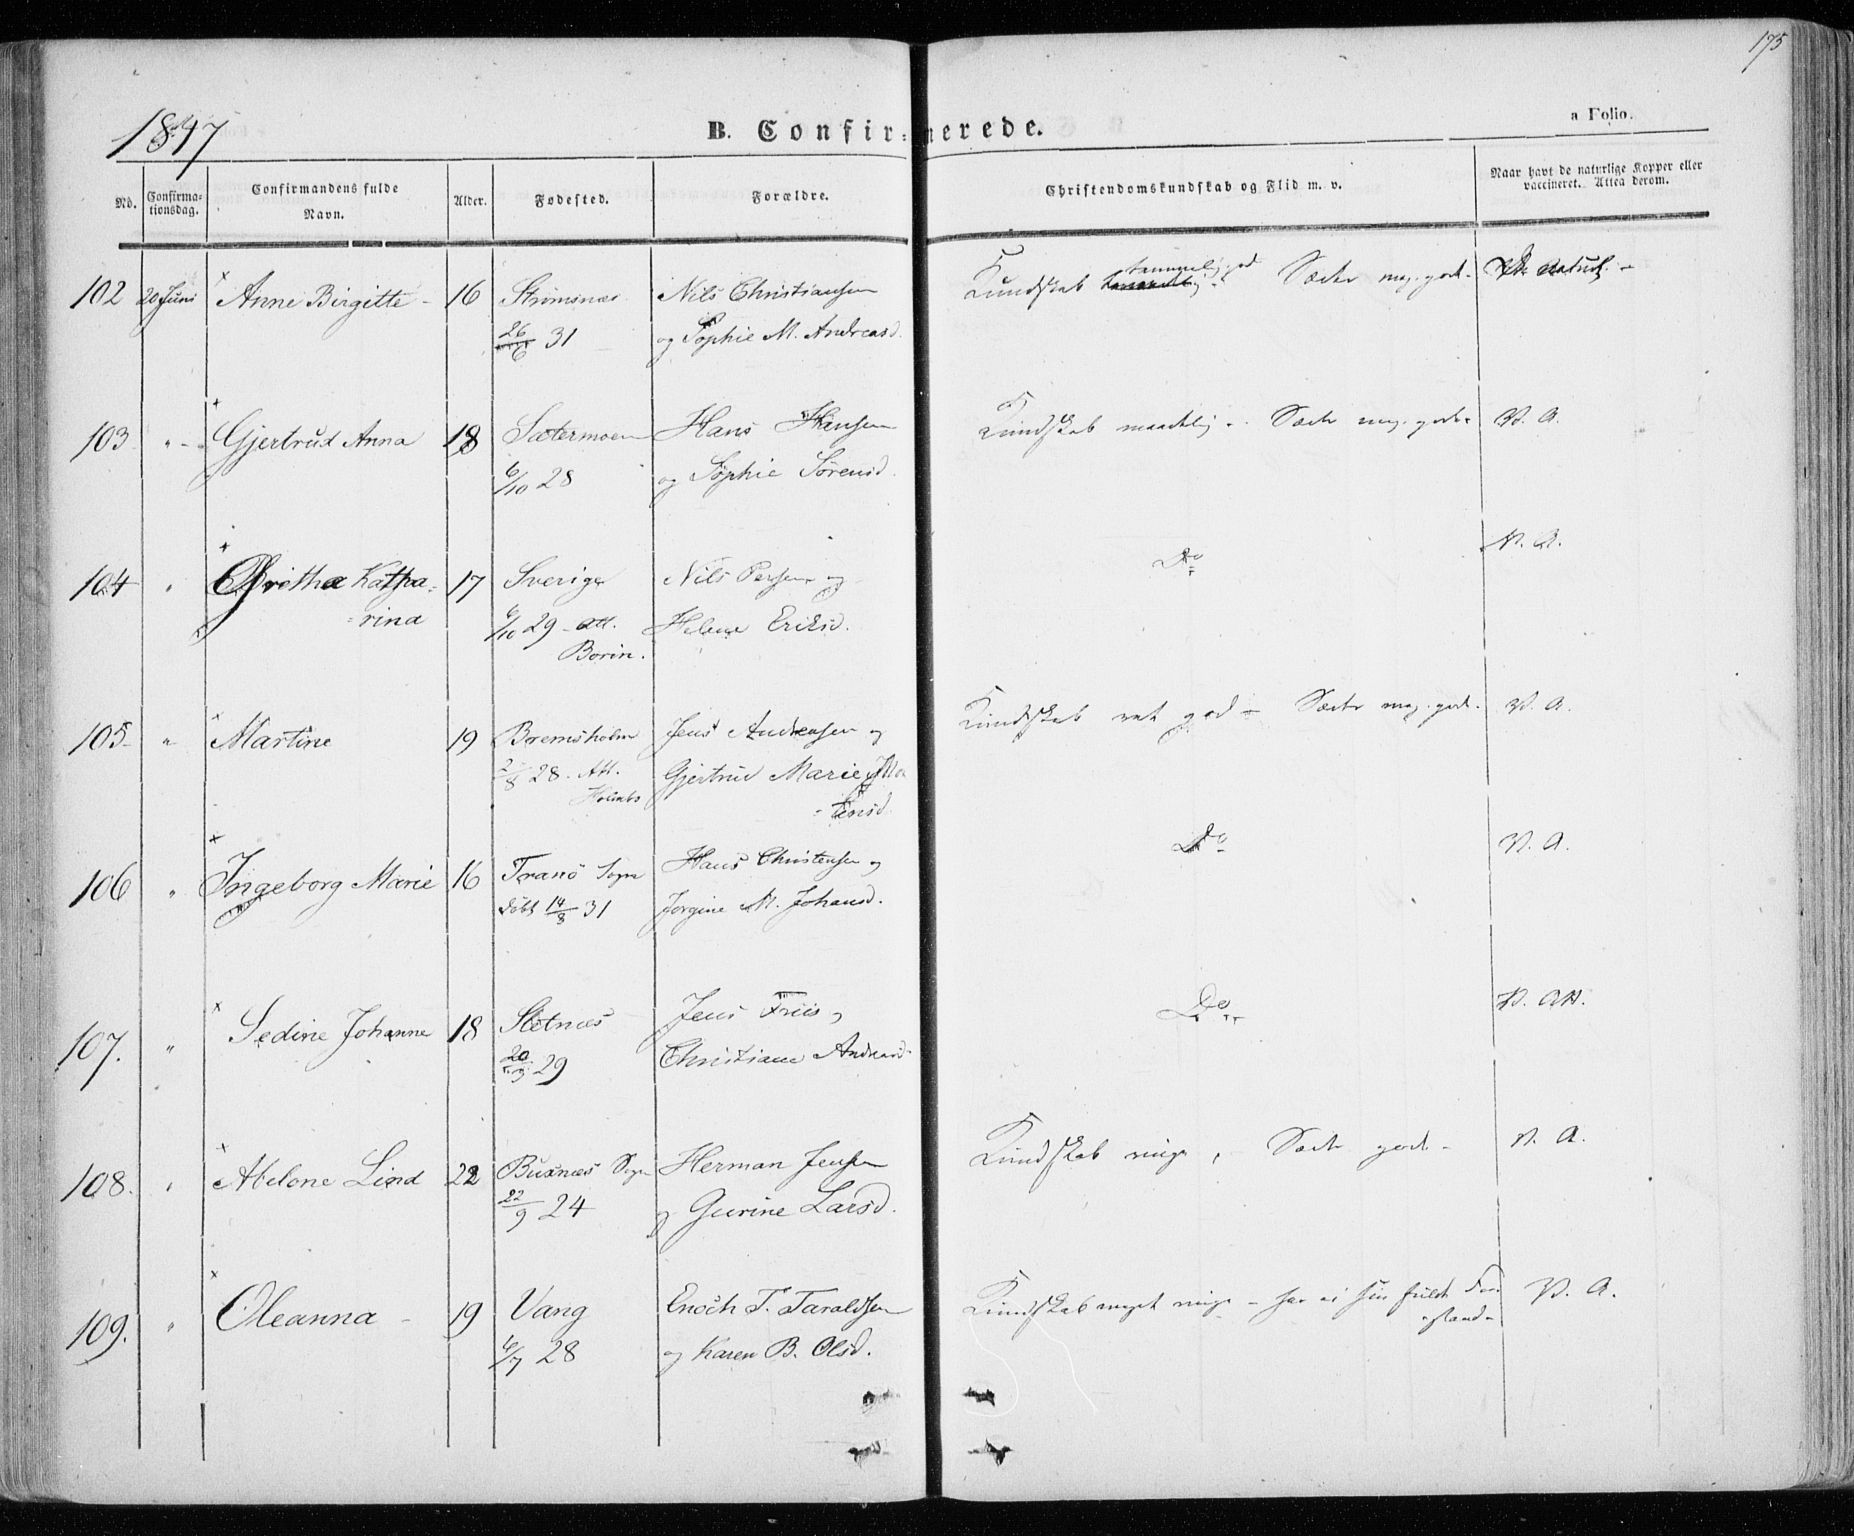 175
1847
B. Confirmerede.
a Folio.
No. Confirmationsdag. Confirmandens fulde Navn. Alder. Fødested. Forældre. Christendomskundskab og Flid m. v. Naar havt de naturlige Kopper eller vaccineret. Attest derom.
102 20 Juni Anne Birgitte - 16 Strømsnæs Nils Christiansen Kundskab temmelig god Sæder meg. god. naturl. -
26/6 31 og Sophie M. Andreasd.
103 " Gjertrud Anna 18 Sætermoen Hans Hansen Kundskab maadelig - Sæder meg. gode V. A.
6/10 28 og Sophie Sørensd.
104 " Gretha Katha- 17 Sverige Nils Persen og Do V. A.
rina 6/10 29 - Att. Helene Eriksd.
Borin.
105 " Martine 19 Bremsholm Jens Andreasen og Kundskab ret god - Sæder meg. gode. V. A.
2/8 28. Att. Gjertrud Marie
106 " Ingeborg Marie 16 Tranø Sogn Hans Christensen og Do V. A.
døbt 14/8 31 Jørgine M. Johansd.
107. " Sedine Johanne 18 Sletnæs Jens Friis, Do V. Att.
20/3 29 Christiane Andreasd
108. " Abelone Lind 22 Buxnæs Sogn Herman Jensen Kundskab ringe, Sæder gode - V. A.
22/9 24 og Gurine Larsd.
109. " Oleanna - 19 Vang Enoch T. Taraldsen Kundskab meget ringe - har ei sin fulde For V. A.
6/7 28 og Karen B. Olsd. stand -